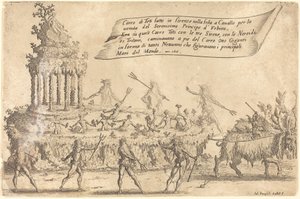 Carro di Teti fatto in Fiorenza nella festa a Cavallo per la
venuta del Serenissimo Principe d'Urbino.
Sono in questo Carro Teti con le tre Sirene, con le Nereidi,
e Tritoni, camminavano a pie del Carro otto Giganti
in forma di tanti Nettunni che figuravano i principali
Mari del Mondo.